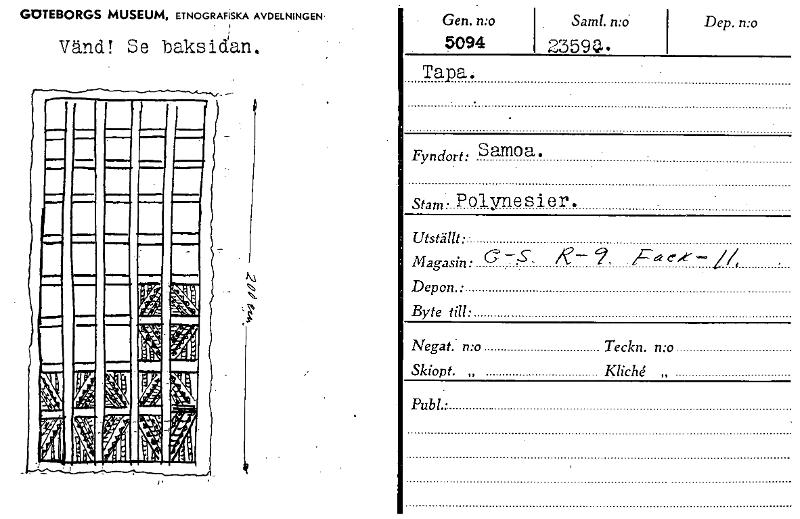 GÖTEBORGS MUSEUM, ETNOGRAFISKA AVDELNINGEN
Vänd! Se baksidan.
200 cm.
Gen. n:o Saml. n:o Dep. n:o
5094 23598.
Tapa.
Fyndort: Samoa.
Stam: Polynesier.
Utställt:
Magasin: G-S. R-9. Fack-11.
Depon.:
Byte till:
Negat. n:o Teckn. n:o
Skiopt. „ Kliché „
Publ.: